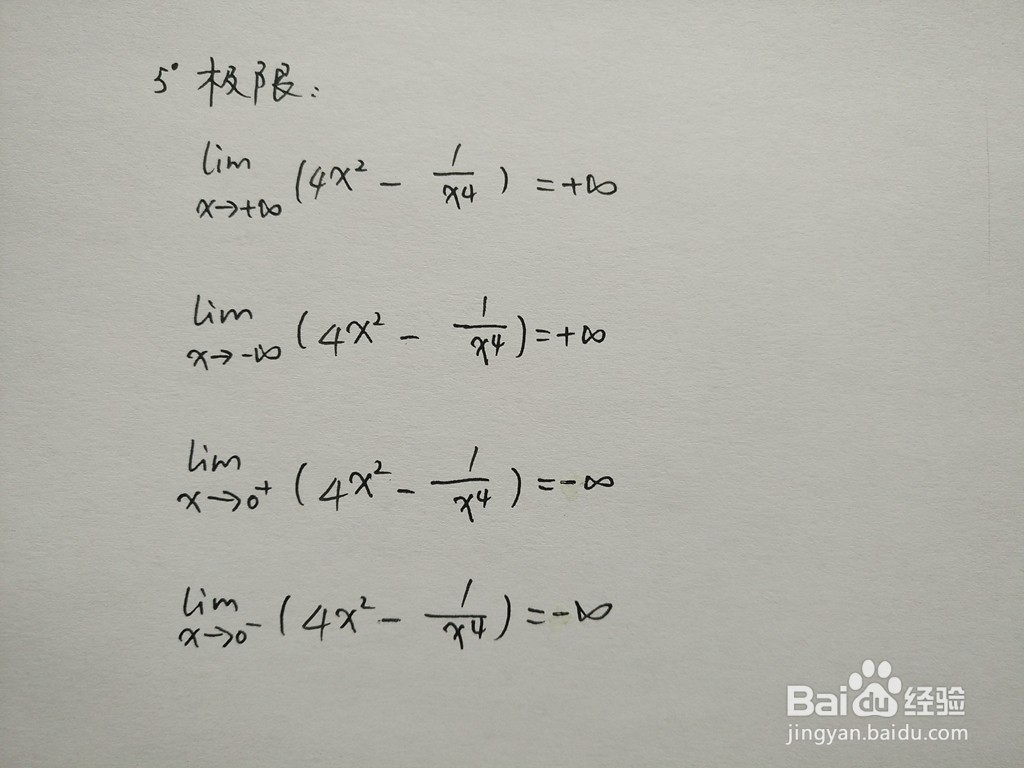 5° 极限:
lim x→+∞ (4x² - 1/x⁴) = +∞
lim x→-∞ (4x² - 1/x⁴) = +∞
lim x→0⁺ (4x² - 1/x⁴) = -∞
lim x→0⁻ (4x² - 1/x⁴) = -∞
Bai 经验
jingyan.baidu.com